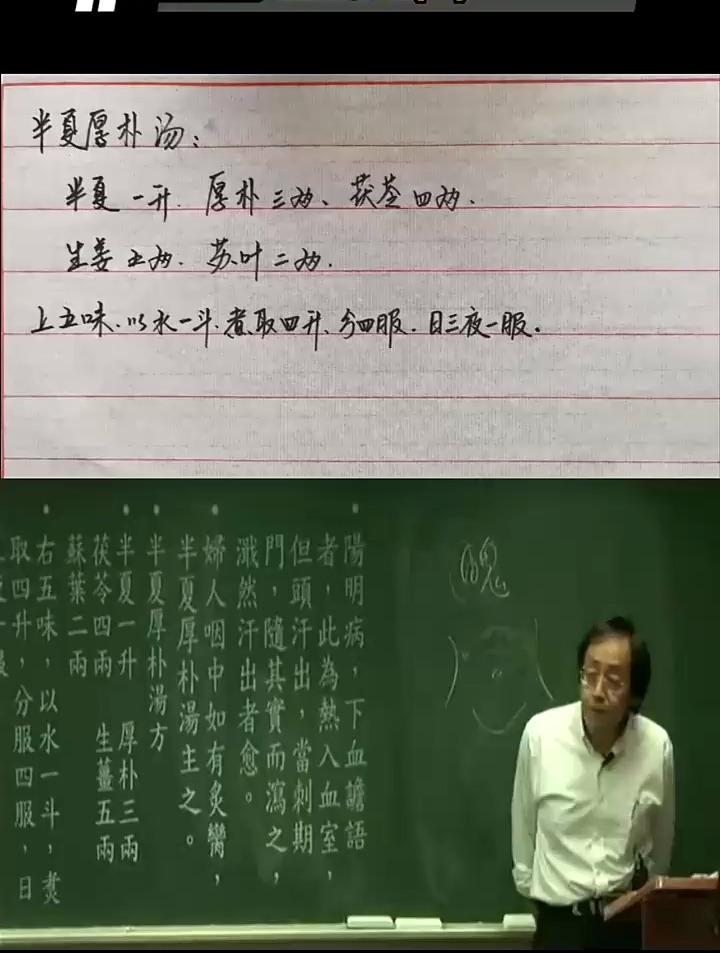 半夏厚朴汤：
半夏一升．厚朴三两、茯苓四两．
生姜五两．苏叶二两．
上五味．以水一斗．煮取四升、分四服．日三夜一服．
陽明病，下血譫語
者，此為熱入血室，
但頭汗出，當刺期
門，隨其實而瀉之，
濈然汗出者愈。
婦人咽中如有炙臠，
半夏厚朴湯主之。
半夏厚朴湯方
半夏一升 厚朴三兩
茯苓四兩 生薑五兩
蘇葉二兩
右五味，以水一斗，煑
取四升，分服四服，日
醜